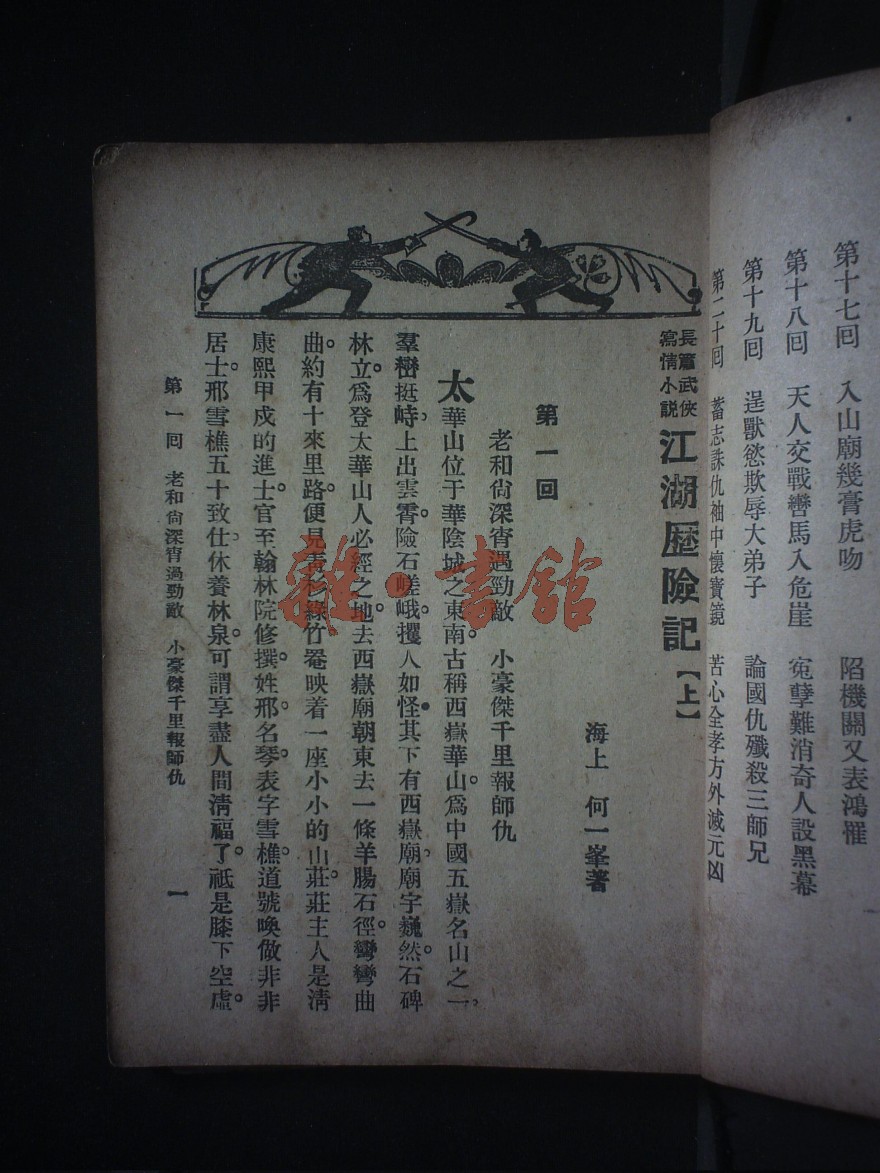 第十七囘　入山廟幾膏虎吻　陷機關又表鴻罹
第十八囘　天人交戰轡馬入危崖　寃孽難消奇人設黑幕
第十九囘　逞獸慾欺辱大弟子　論國仇殲殺三師兄
第二十囘　蓄志誅仇袖中懷寶鏡　苦心全孝方外滅元凶
長篇武俠
寫情小說
江湖歷險記【上】
海上　何一峯著
第一囘
老和尙深宵遇勁敵　小豪傑千里報師仇
太華山位于華陰城之東南。古稱西嶽華山。爲中國五嶽名山之一，
羣巒挺峙，上出雲霄。險石嵯峨。攫人如怪。其下有西嶽廟，廟宇巍然。石碑
林立。爲登太華山人必經之地。去西嶽廟朝東去一條羊腸石徑。彎彎曲
曲。約有十來里路。便見靑杉綠竹罨映着一座小小的山莊。莊主人是淸
康熙甲戍的進士。官至翰林院修撰。姓邢。名琴。表字雪樵。道號喚做非非
居士。邢雪樵五十致仕。休養林泉。可謂享盡人間淸福了。祇是膝下空虛。
第一囘　老和尙深宵過勁敵　小豪傑千里報師仇
一
雜·書館